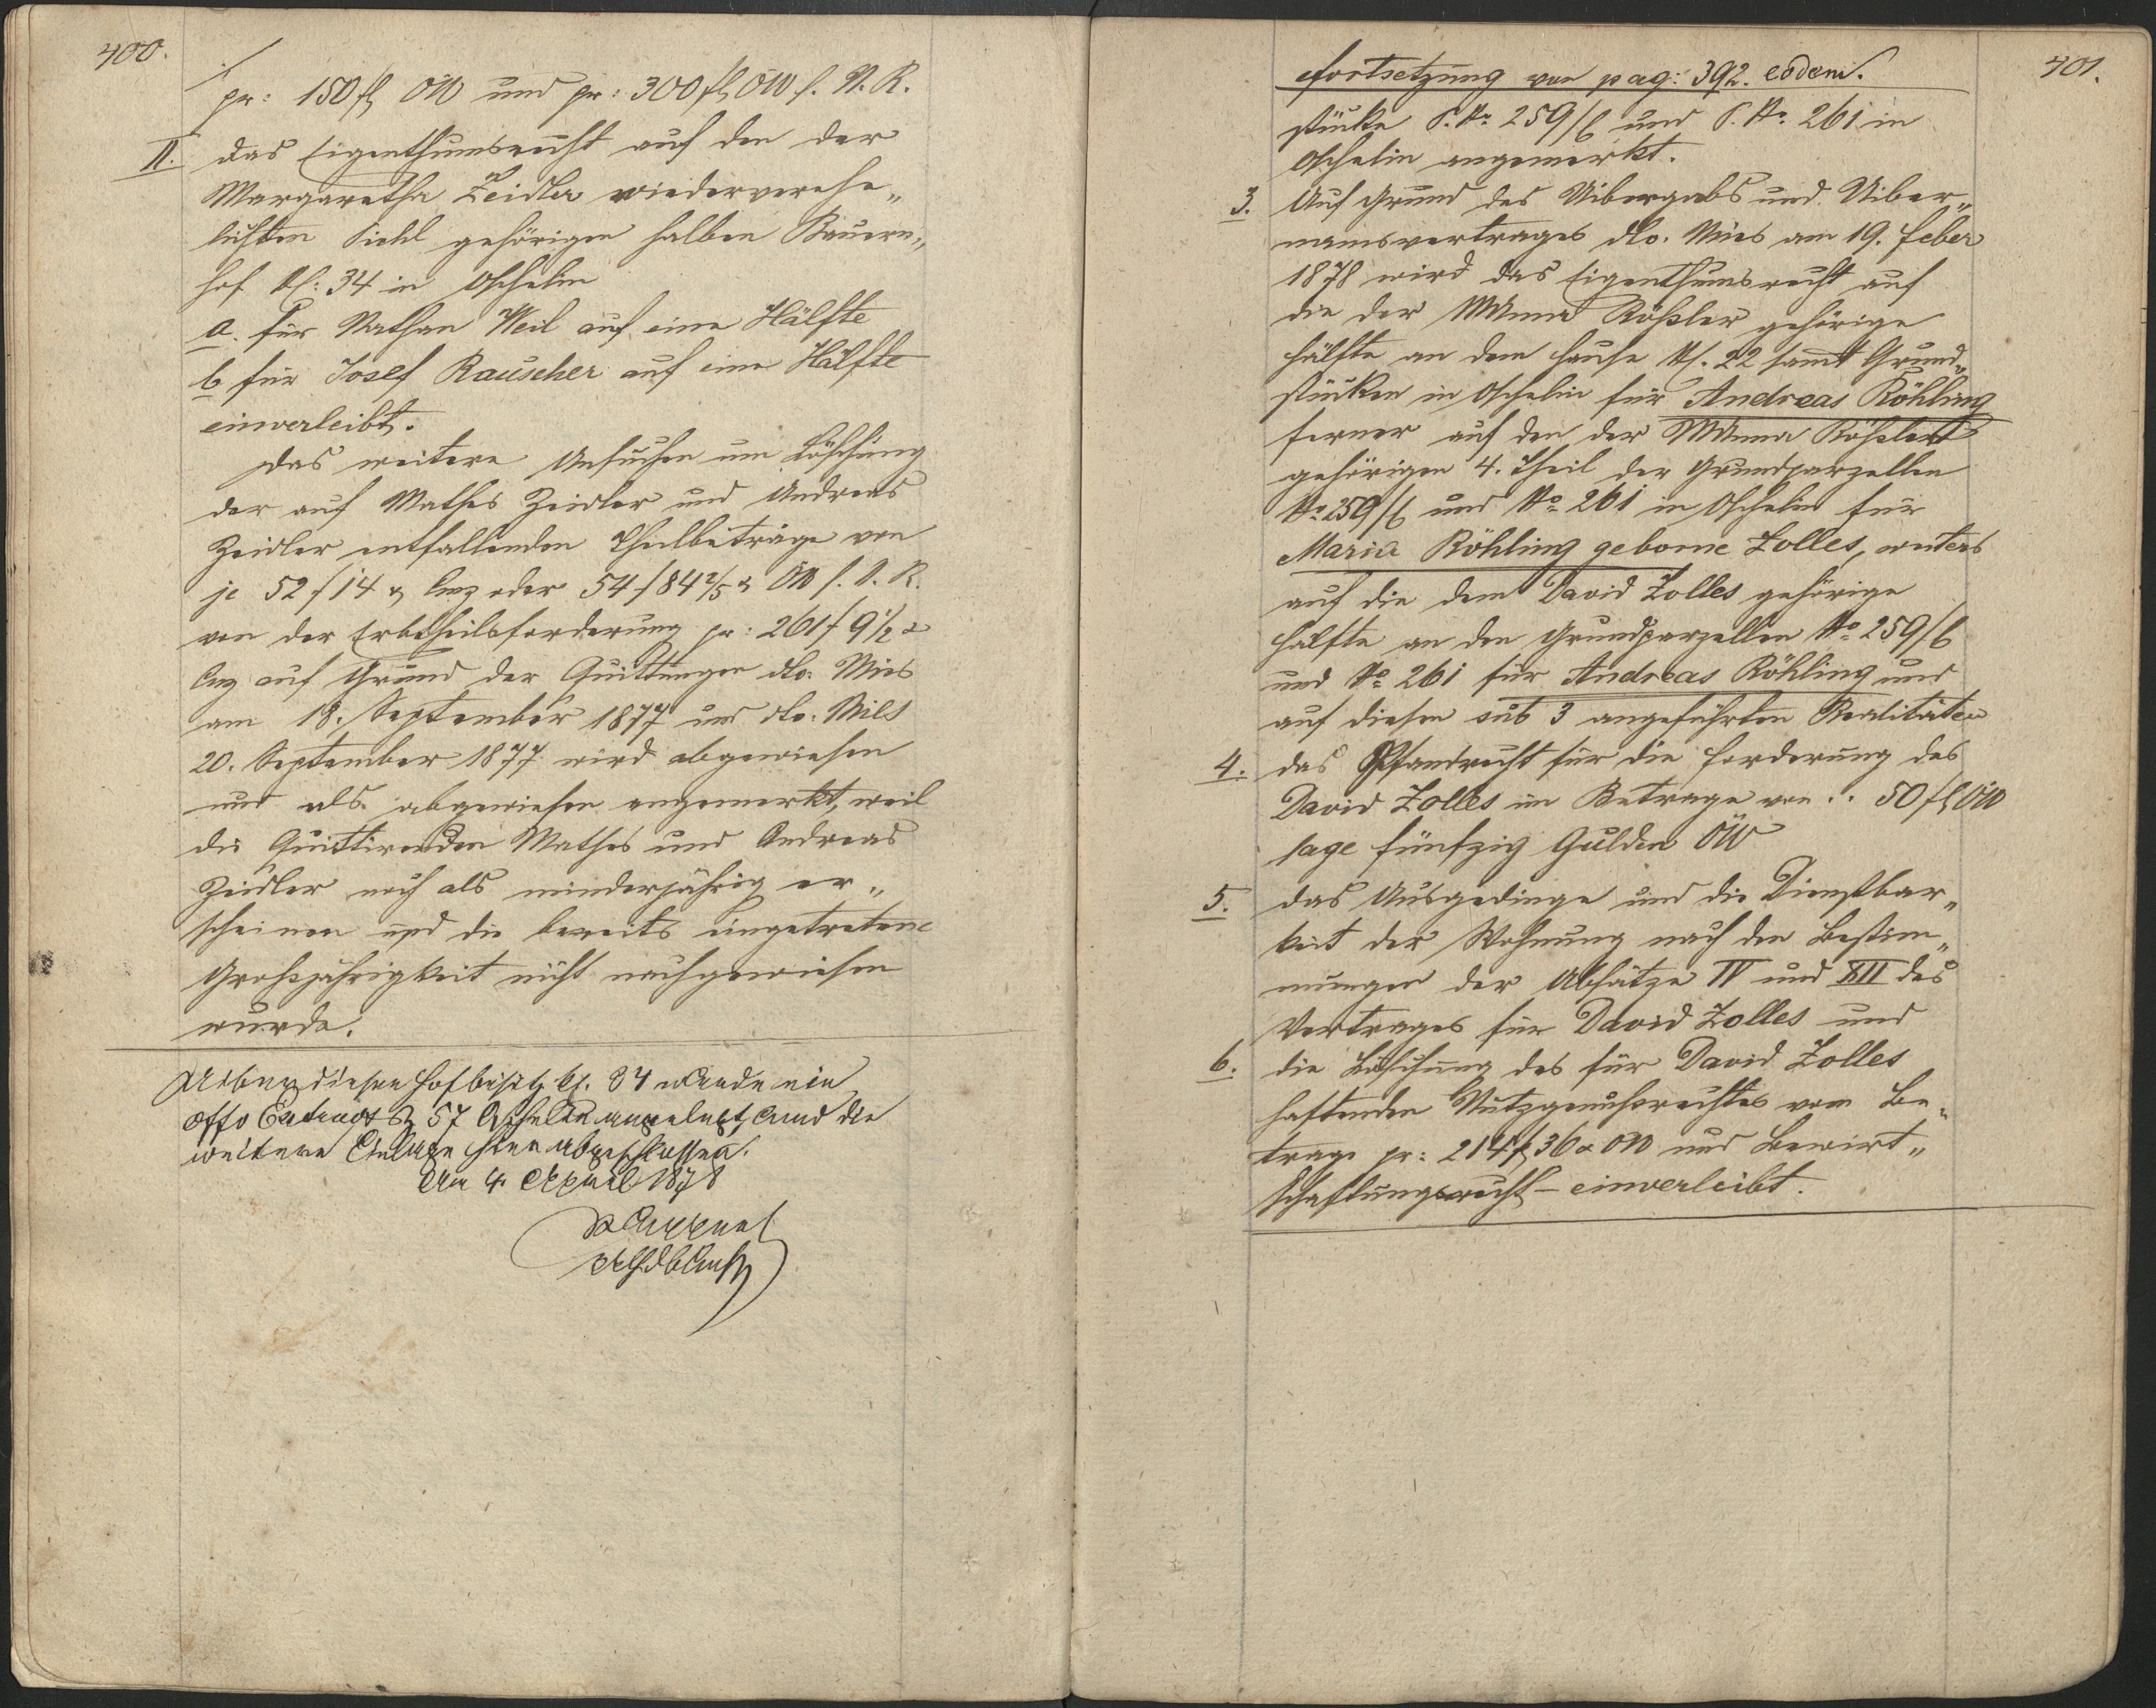 400.
pr: 150 fl ÖW und pr: 300 fl ÖW s. N. R.
II. das Eigenthumsrecht auf den der
Margaretha Zeidler wiederverehe„
lichten Pichl gehörigen halben Bauern„
hof NC: 34 in Oschelin
a. für Nathan Weil auf eine Hälfte
b für Josef Rauscher auf eine Hälfte
einverleibt.
Das weitere Ansuchen um Löschung
der auf Mathes Zeidler und Andreas
Zeidler entfallenden Theilbeträge von
je 52 f 14 x Cmz oder 54 f 84 2/5 x ÖW s. N. R.
von der Erbtheilsforderung pr: 261 f 9 1/2 x
Cmz auf Grund der Quittungen dto. Mies
am 18. September 1877 und dto.
20. September 1877 wird abgewiesen
und als abgewiesen angemerkt, weil
die Quittirenden Mathes und Andreas
Zeidler noch als minderjährig er„
scheinen und die bereits eingetretene
Großjährigkeit nicht nachgewiesen
wurde.
Ueber diesen Hofbesitz NC. 34 wurde ein
57 Oschelin angelegt, und die
weitere Einlage hier abgeschlossen.
Am 4. April 1878
401.
Fortsetzung von pag: 392. eodem.
stücke P. No. 259/b und P. No. 261 in
Oschelin angemerkt.
3. Auf Grund des Uibergabs und Uiber„
namsvertrages dto. Mies am 19. Feber
1878 wird das Eigenthumsrecht auf
die der MAnna Rößler gehörige
Hälfte an dem Hause NC. 22 samt Grund„
stücken in Oschelin für Andreas Röhling
ferner auf den der MAnna Rößler
gehörigen 4. Theil der Grundparzellen
No. 259/b und No. 261 in Oschelin für
Maria Röhling geborne Zolles, weiters
auf die dem David Zolles gehörige
Hälfte an den Grundparzellen No. 259/b
und No. 261 für Andreas Röhling und
auf diesen sub 3 angeführten Realitäten
4. das Pfandrecht für die Forderung des
David Zolles im Betrage von .. 50 fl ÖW
sage fünfzig Gulden ÖW
5. das Ausgedinge und die Dienstbar„
keit der Wohnung nach den Bestim„
mungen der Absätze IV und XII des
Vertrages für David Zolles und
6. die Löschung des für David Zolles
haftenden Nutzgenußrechtes vom Be„
trage pr: 214 f 36 x ÖW und Bewirt„
schaftungsrecht – einverleibt.